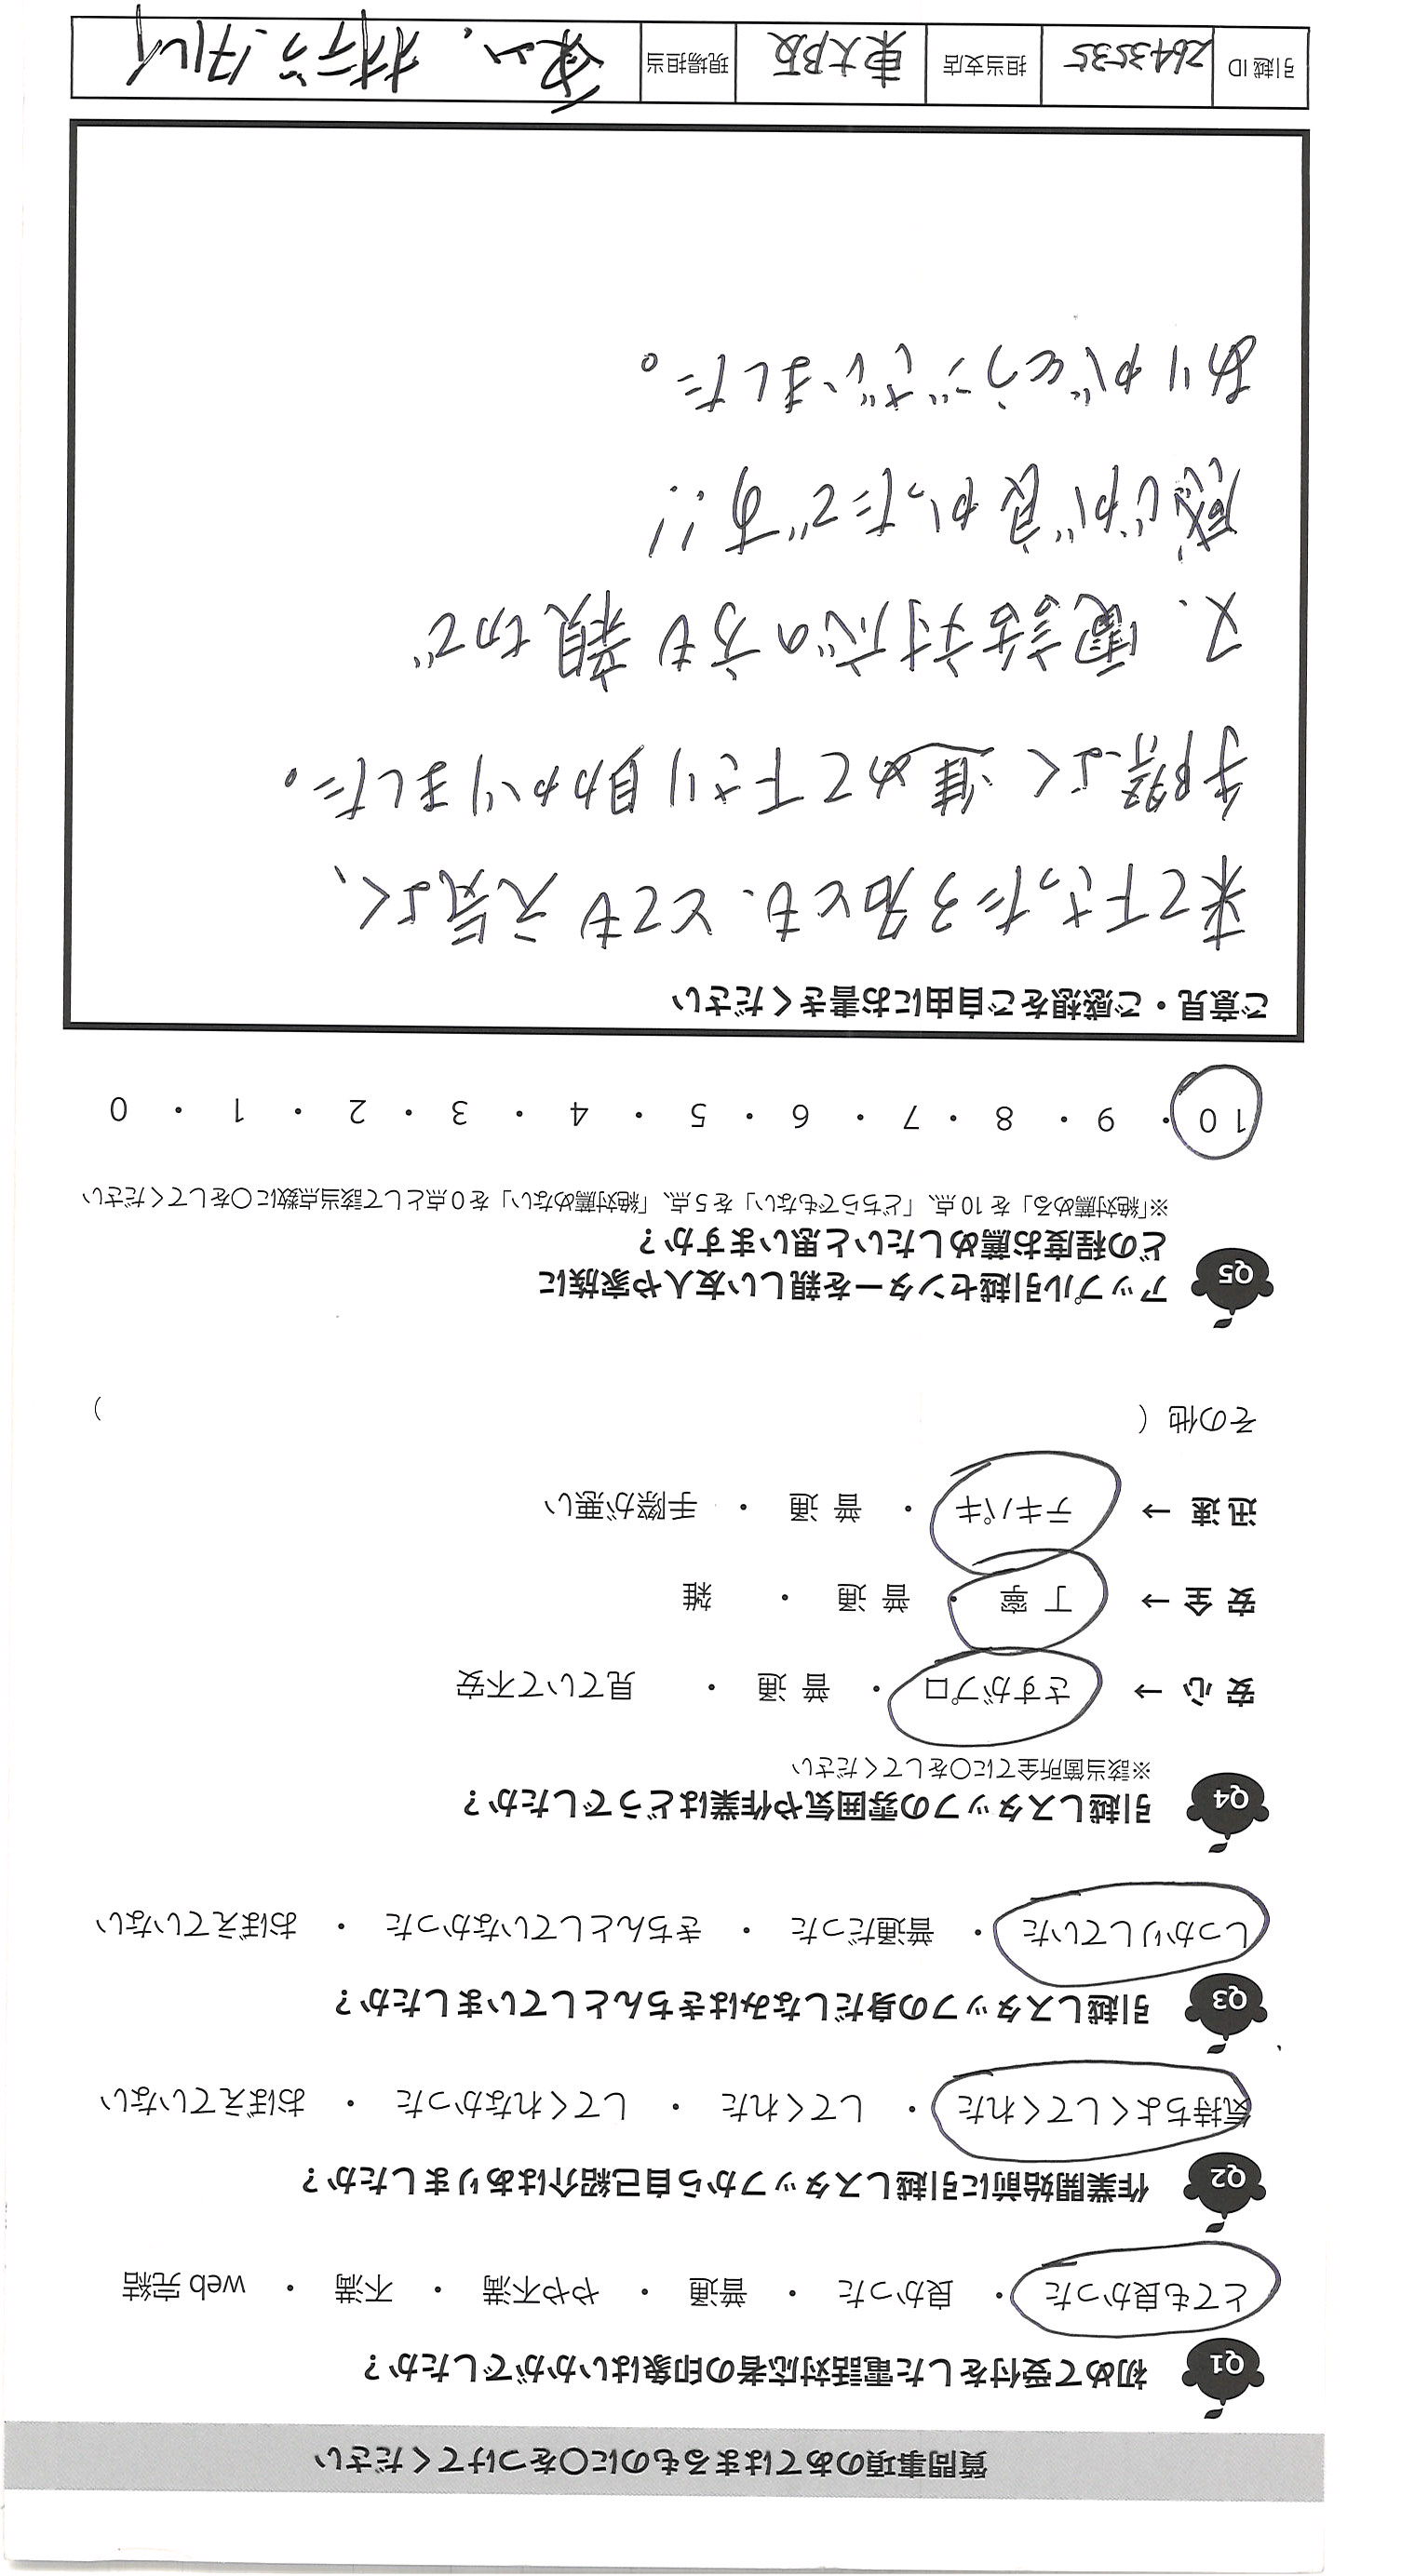 質問事項のあてはまるものに○をつけてください
Q1 初めて受付をした電話対応者の印象はいかがでしたか？
とても良かった ・ 良かった ・ 普通 ・ やや不満 ・ 不満 ・ web 完結
Q2 作業開始前に引越しスタッフから自己紹介はありましたか？
気持ちよくしてくれた ・ してくれた ・ してくれなかった ・ おぼえていない
Q3 引越しスタッフの身だしなみはきちんとしていましたか？
しっかりしていた ・ 普通だった ・ きちんとしていなかった ・ おぼえていない
Q4 引越しスタッフの雰囲気や作業はどうでしたか？
※該当箇所全てに○をしてください
安 心 → さすがプロ ・ 普 通 ・ 見ていて不安
安 全 → 丁 寧 ・ 普 通 ・ 雑
迅 速 → テキパキ ・ 普 通 ・ 手際が悪い
その他（ ）
Q5 アップル引越センターを親しい友人や家族に
どの程度お薦めしたいと思いますか？
※「絶対薦める」を 10 点、「どちらでもない」を 5 点、「絶対薦めない」を 0 点として該当点数に○をしてください
10 ・ 9 ・ 8 ・ 7 ・ 6 ・ 5 ・ 4 ・ 3 ・ 2 ・ 1 ・ 0
ご意見・ご感想をご自由にお書きください
来て下さった3名とも、とても元気よく、
手際よく進めて下さり助かりました。
又、電話対応の方も親切で
感じが良かったです!!
ありがとうございました。
引越 ID 2643535 担当支店 東大阪 現場担当